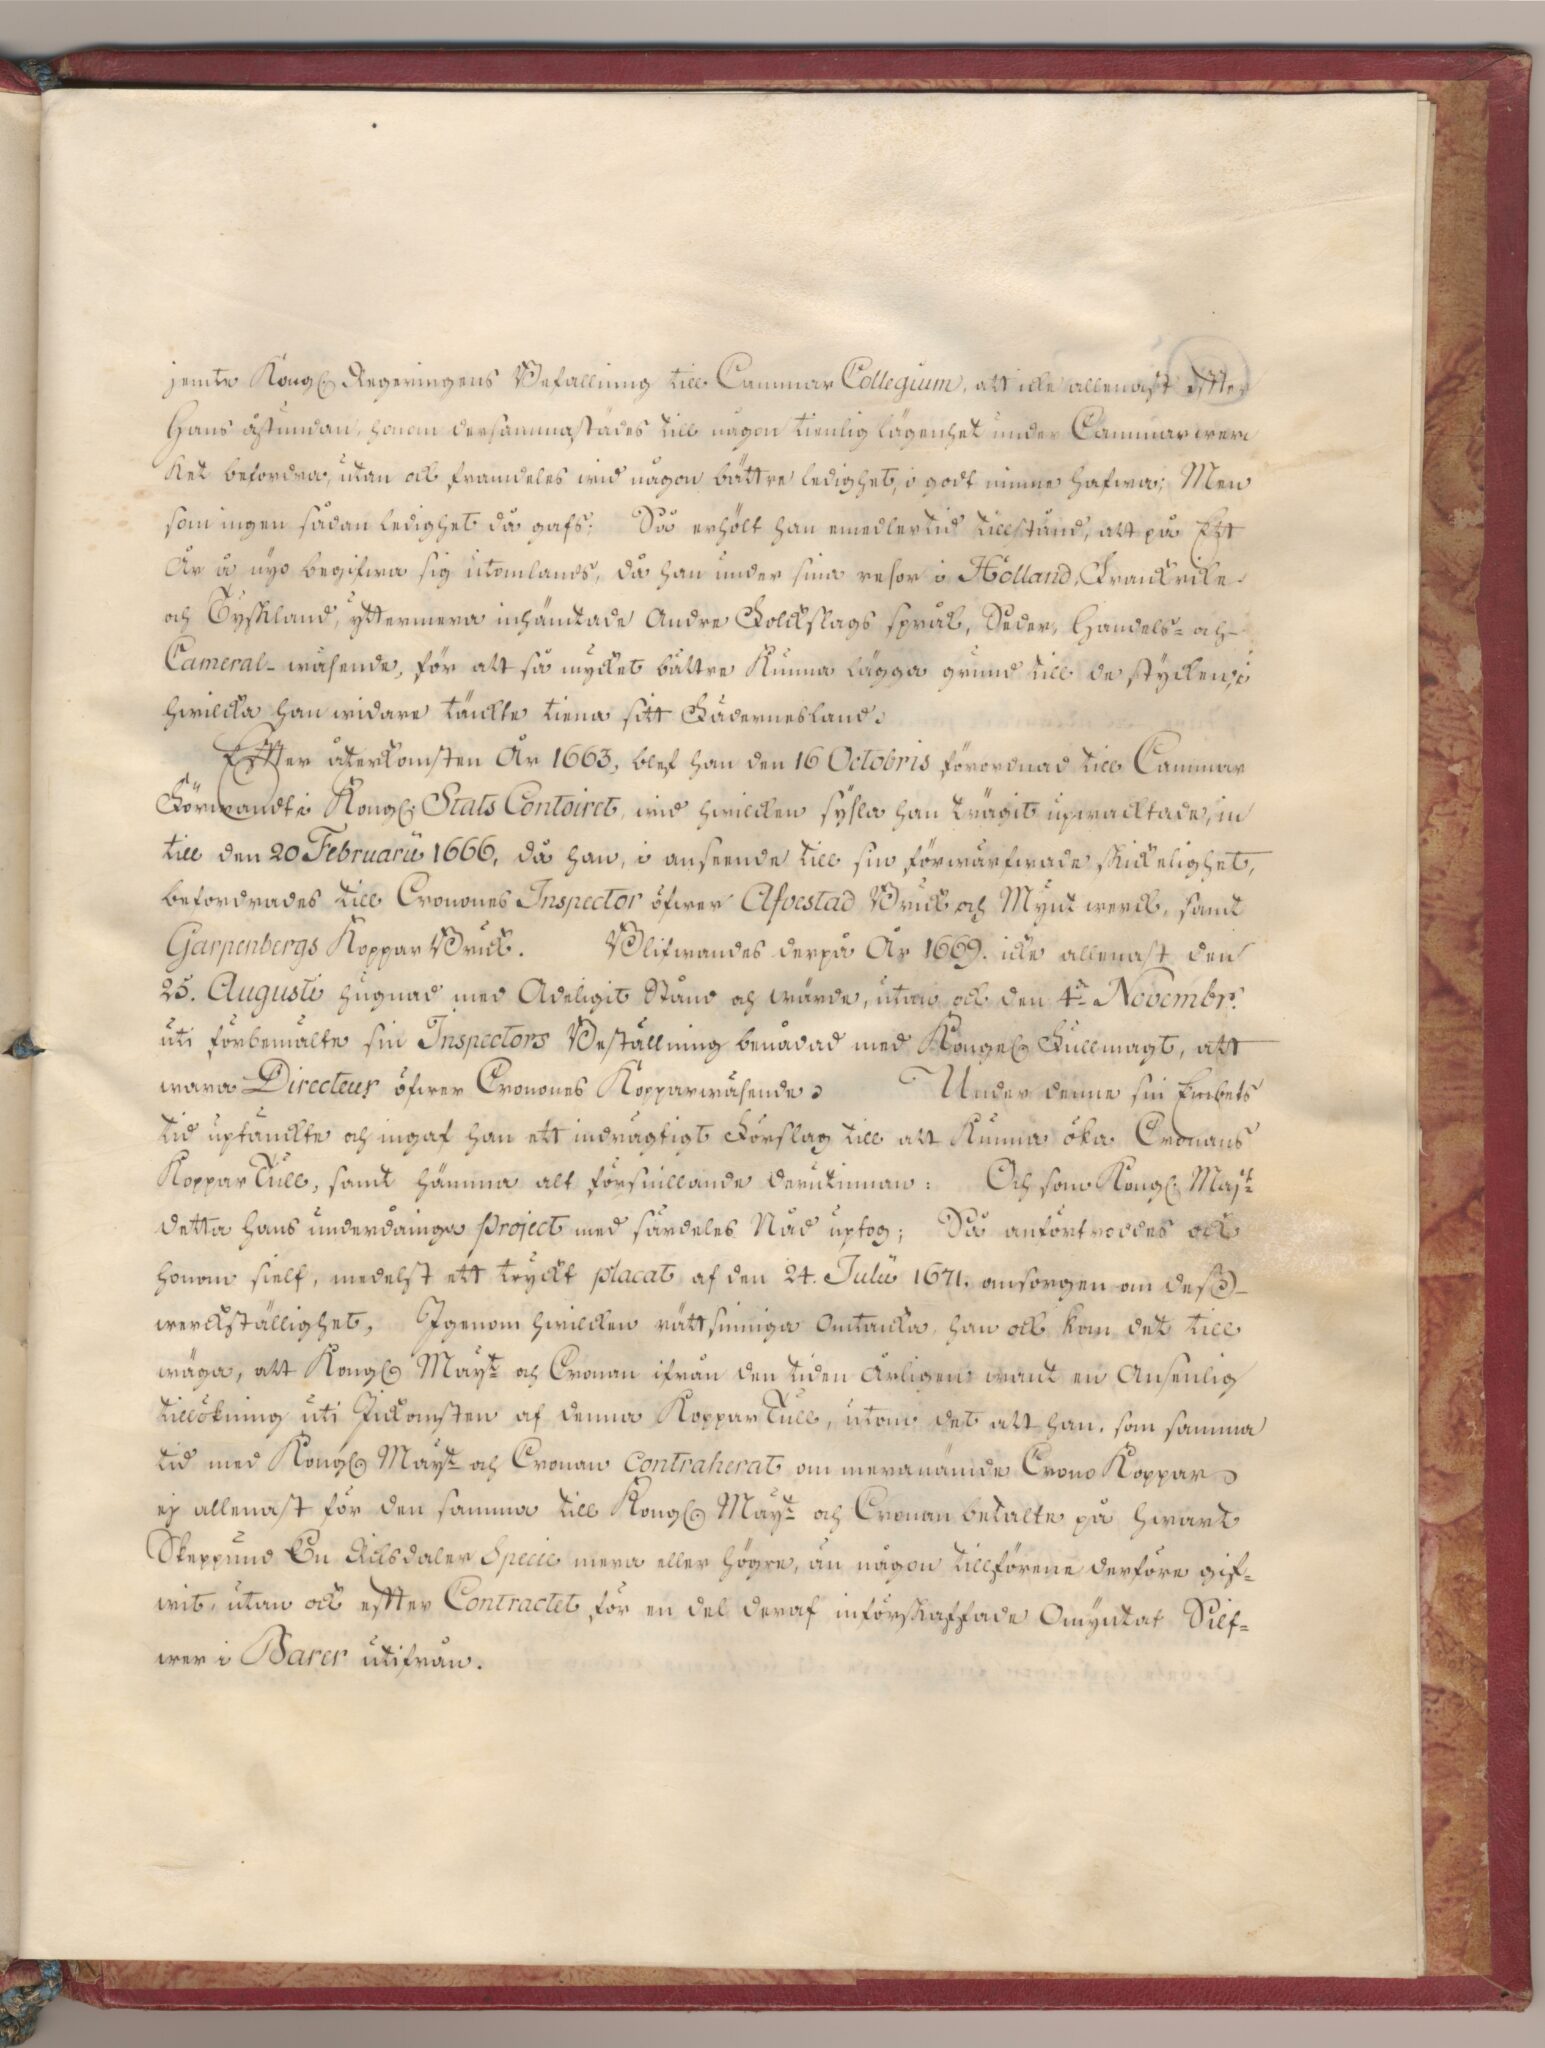 jemte Kongl. Regeringens Befallning till Cammar Collegium, att icke allenast effter
Hans åstundan, honom dersammastädes till någon tienlig lägenhet under Cammarwerc
ket befordra, utan ock framdeles wid någon bättre ledighet, i godt minne hafwa; Men
som ingen sådan ledighet då gafs; Så erhölt han emedlertid tillstånd, att på Ett
År å nyo begifwa sig utomlands, då han under sina resor i Holland, Franckrike
och Tyskland, yttermera inhämtade Andre Folckslags språk, Seder, Handels- och
Cameral-wäsende, för att så mycket bättre kunna lägga grund till de stycken, i
hwilcka han widare täckte tiena sitt Fädernesland.
Effter återkomsten År 1663, blef han den 16 Octobris förordnad till Cammar
Förwandt i Kongl. Stats Contoiret, wid hwilcken sysla han trägit upwacktade, in
till den 20 Februarii 1666, då han, i anseende till sin förwärfwade skickelighet,
befordrades till Cronones Inspector öfwer Afvestad Bruck och Myntwerck, samt
Garpenbergs Koppar Bruck. Blifwandes derpå År 1669. icke allenast den
25. Augusti hugnad med Adeligit Stånd och wärde, utan ock den 4de Novembr:
uti förbemälte sin Inspectors Beställning benådad med Kongel. Fullmagt, att
wara Directeur öfwer Cronones Kopparwäsende. Under denne sin Embets
tid uptänckte och ingaf han ett indrägtigt Förslag till att kunna öka Cronans
Koppar Tull, samt hämma alt försnillande derutinnan: Och som Kongl. Maj:t
detta hans underdåniga Project med särdeles Nåd uptog; Så anförtroddes ock
honom sielf, medelst ett tryckt placat af den 24. Julii 1671. omsorgen om dess
werckställighet, Igenom hwilcken rättsinniga omtancka, han ock kom det till
wäga, att Kongl. May:t och Cronan ifrån den tiden Årligen want en Ansenlig
tillökning uti Inkomsten af denna Koppar Tull, utom det att han, som samma
tid med Kongl. May:t och Cronan Contraherat om meranämde Crono Koppar
ej allenast för den samma till Kongl. May:t och Cronan betalte på hwart
Skeppund En Riksdaler Specie mera eller högre, än någon tillförene derföre gif-
wit, utan ock effter Contractet för en del deraf införskaffade Omyntat Silf-
wer i Barer utifrån.